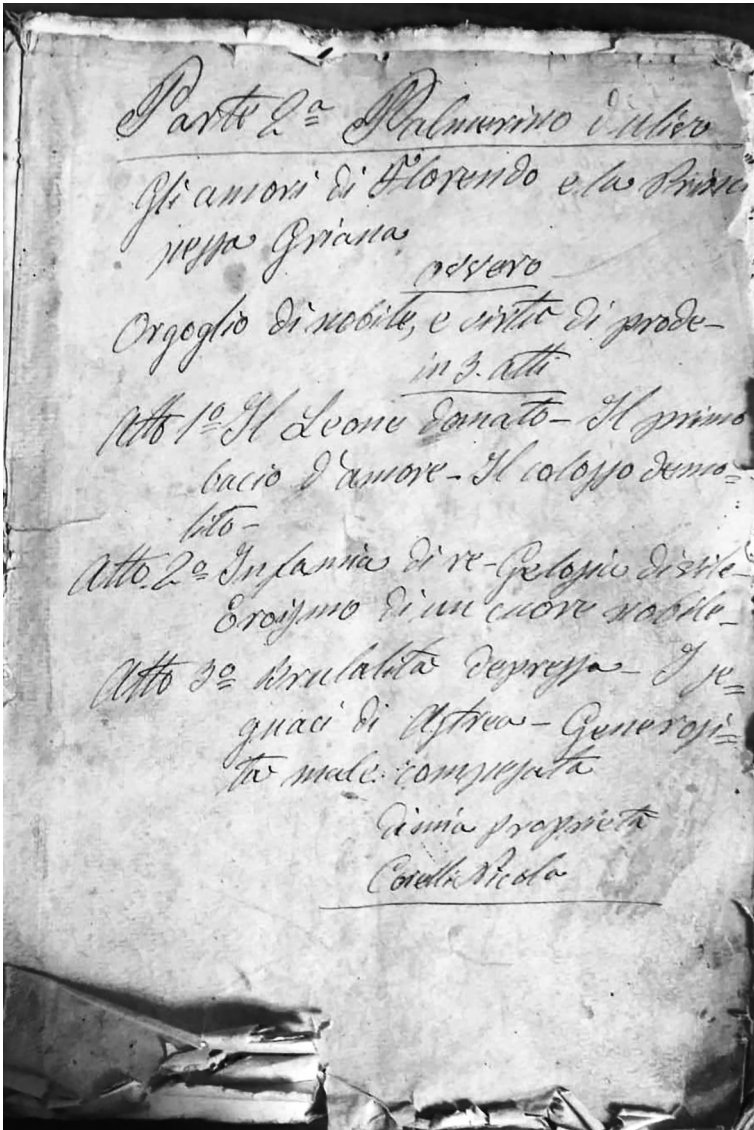 Parte 2ª Palmerino d'ulivo
Gli amori di Florendo e la Princi
pessa Griana
ovvero
Orgoglio di nobile, e virtù di prode -
in 3. atti
Atto 1º Il Leone domato - Il primo
bacio d'amore - Il colosso demo=
lito -
Atto 2º Infamia di re - Gelosia di vile -
Eroismo di un cuore nobile -
Atto 3º Brutalità depressa - I se=
guaci di Astrea - Generosi=
tà male compesata
di mia proprietà
Nicola